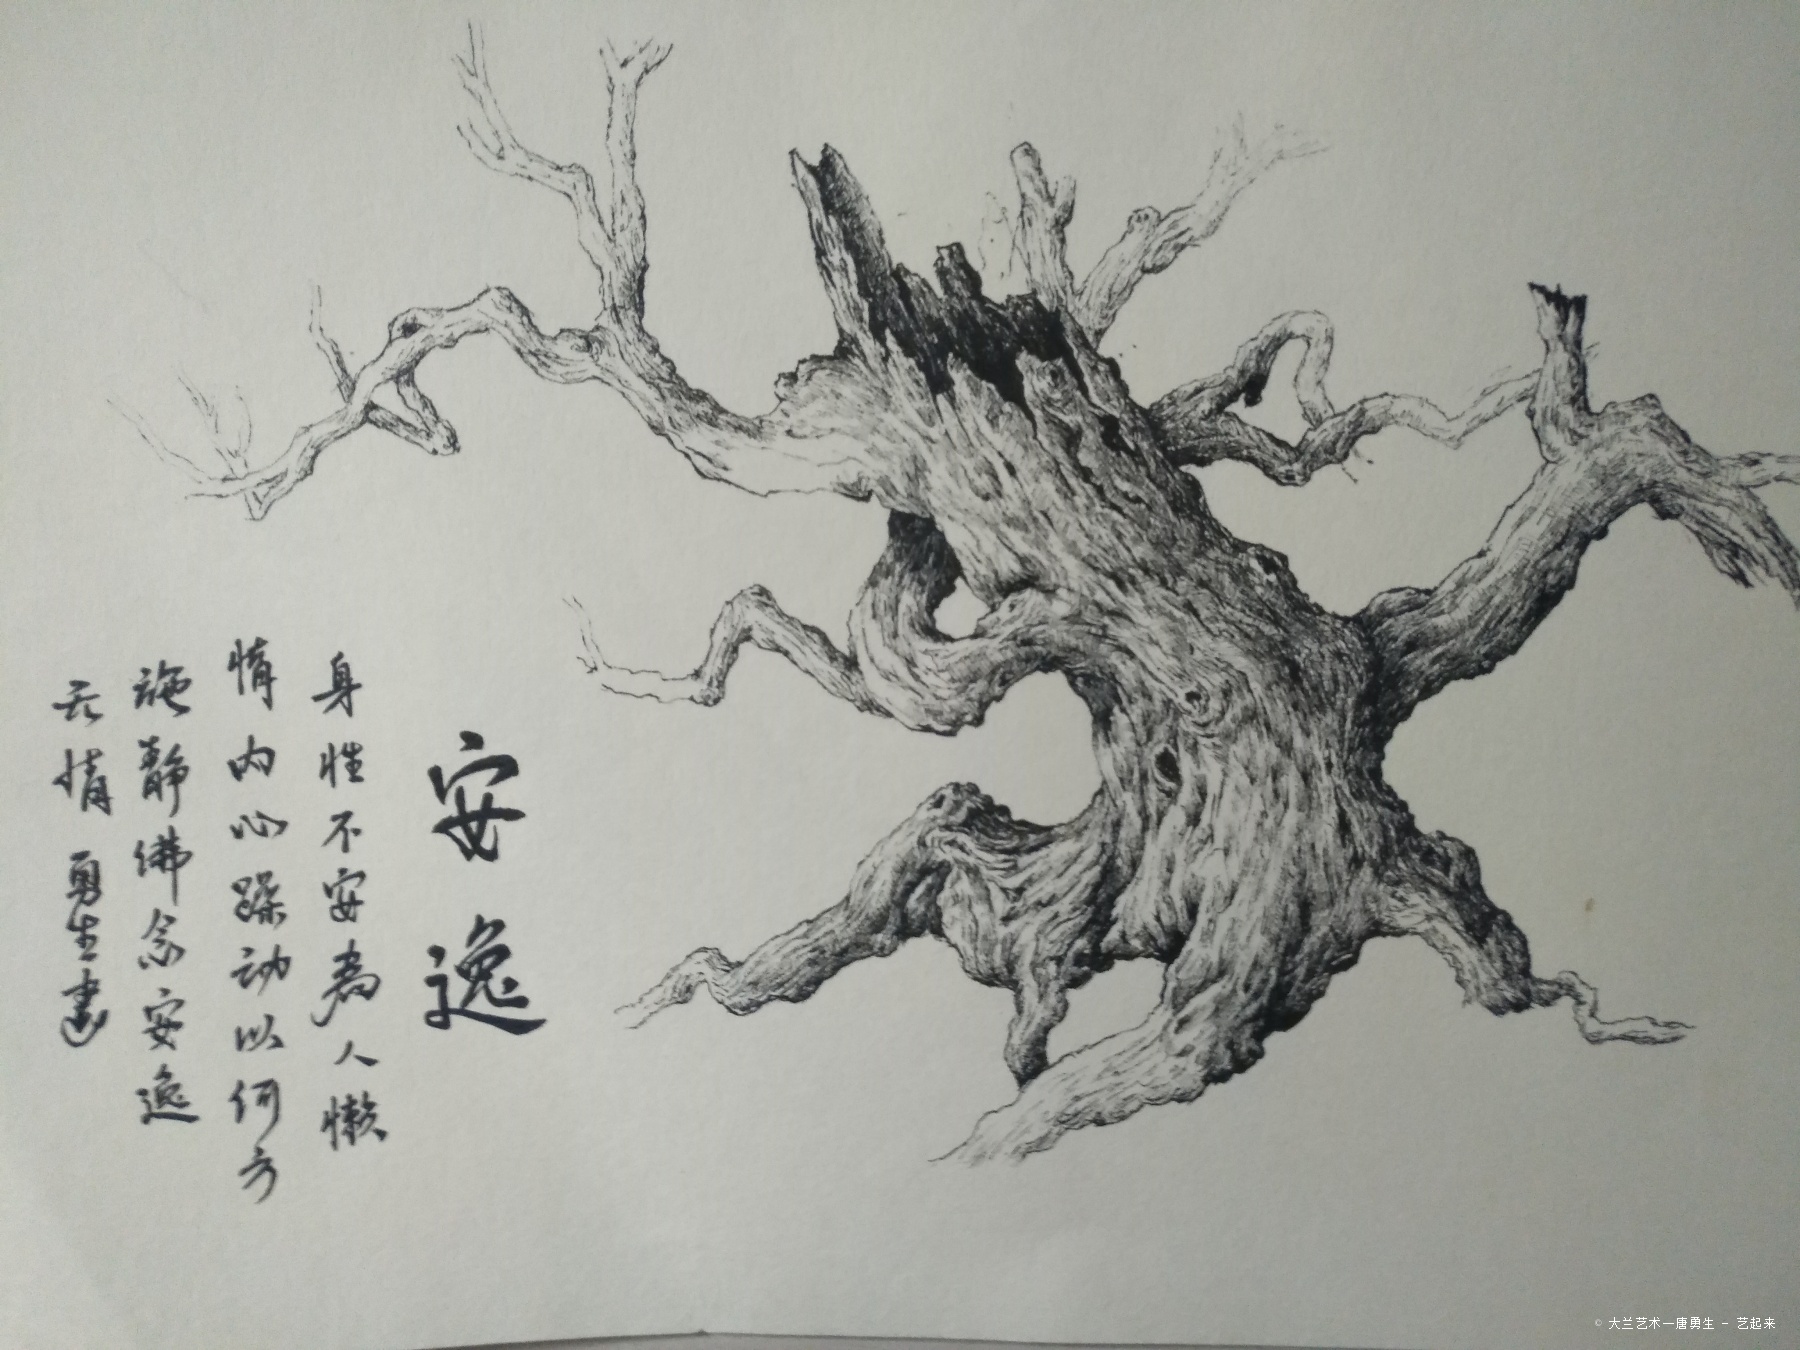 安逸
身性不安為人懒
惰内心躁动以何方
施静佛念安逸
无情 勇生書
© 大兰艺术—唐勇生 - 艺起来